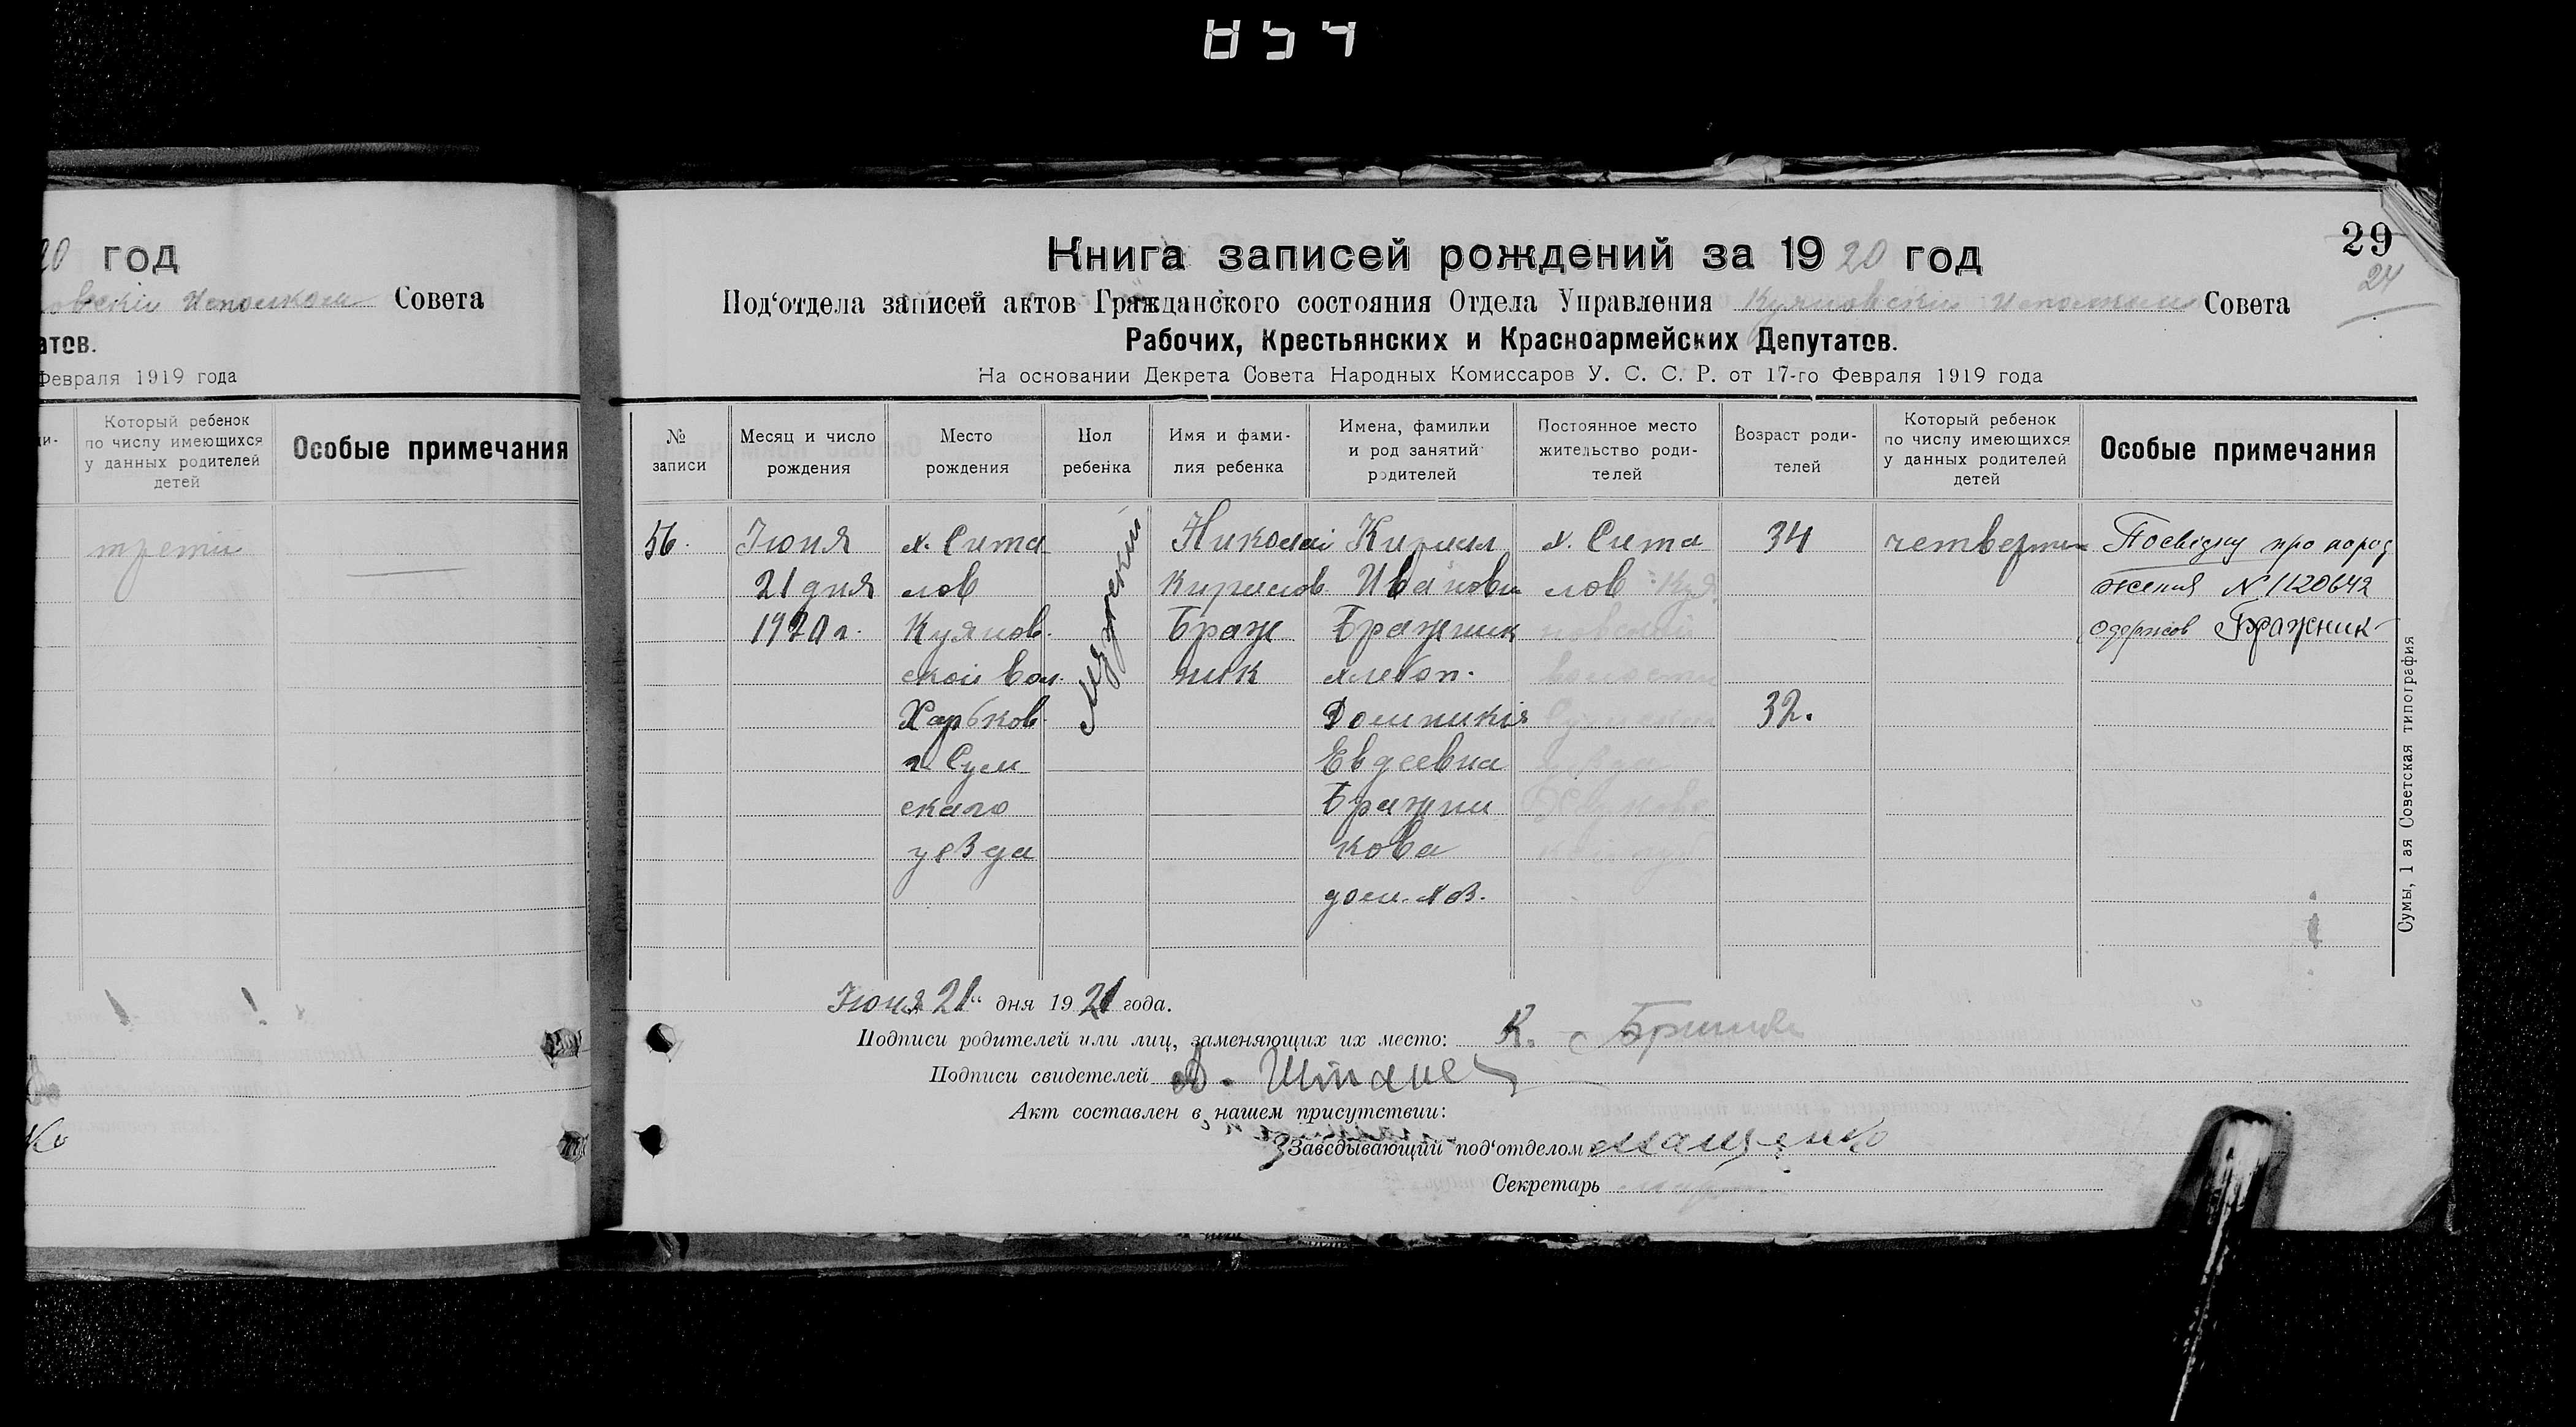 854
20 год
овскiи Исполком Совета
атов.
Февраля 1919 года
Который ребенок
по числу имеющихся
у данных родителей
детей
Особые примечания
третiи
Книга записей рождений за 1920 год
29
24
Под‘отдела записей актов Гражданского состояния Отдела Управления Куяновскiи Исполком Совета
Рабочих, Крестьянских и Красноармейских Депутатов.
На основании Декрета Совета Народных Комиссаров У. С. С. Р. от 17-го Февраля 1919 года
№
записи
Месяц и число
рождения
Место
рождения
Пол
ребенка
Имя и фами-
лия ребенка
Имена, фамилии
и род занятий
родителей
Постоянное место
жительство роди-
телей
Возраст роди-
телей
Который ребенок
по числу имеющихся
у данных родителей
детей
Особые примечания
56.
Iюня
21 дня
1920 г.
х. Сита
лов
Куянов.
ской вол.
Харьков.
г. Сум
скаго
уезда
Мужский
Николай
Кирилов
Браж
ник
Кирилл
Иванови
Бражник
хлебоп.
Домникiя
Евдеевна
Бражни
кова
дом. хоз.
х. Сита
лов Куя
новской
волости
Сумскаго
уезда
34
32.
четвертый
Посвiдку про народ
ження N 1120642
одержав Бражник
Сумы, 1 ая Советская типография
Iюня 21“ дня 1921 года.
Подписи родителей или лиц, заменяющих их место: К.
Подписи свидетелей
Акт составлен в нашем присутствии:
Заведывающий под‘отделом Мащенко
Секретарь